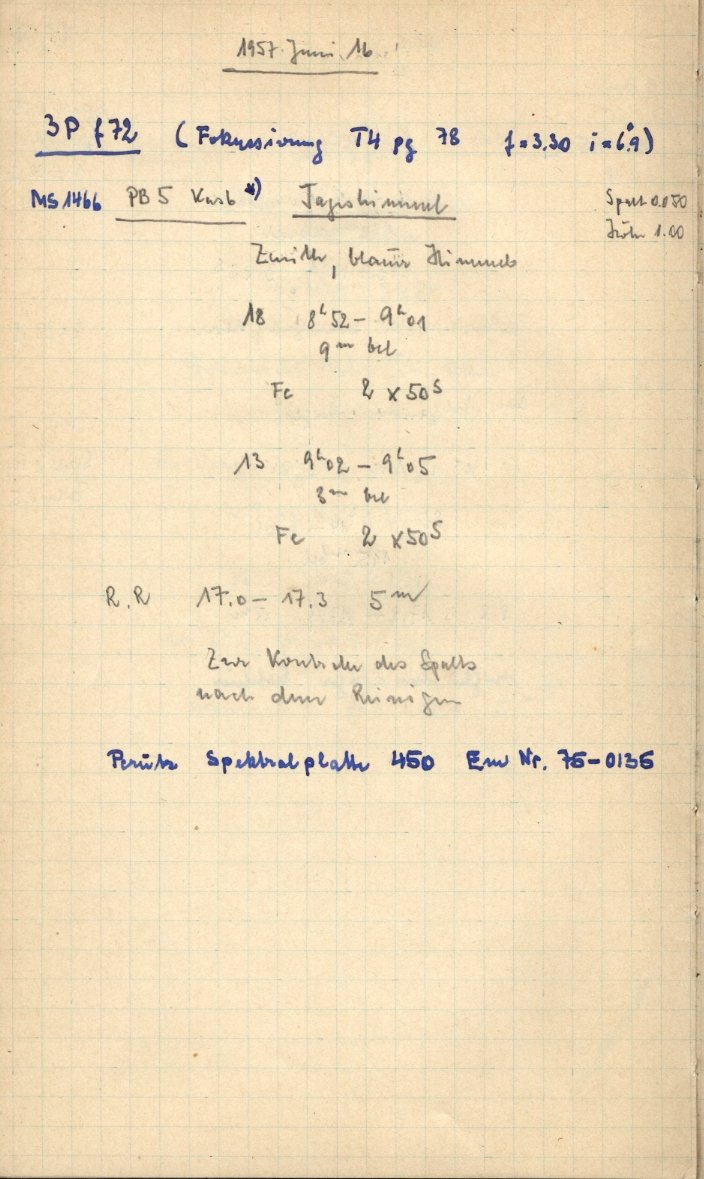 1957 Juni 16
3P f72 (Fokussierung T4 pg 78 f=3.30 i=6°.9)
MS 1466 PB 5 *) Tageshimmel Spalt 0.050
Höhe 1.00
Zenith, blauer Himmel
18 8h52 – 9h01
9m bel
Fe 2 x 50s
13 9h02 – 9h05
3m bel
Fe 2 x 50s
R.R 17.0 – 17.3 5m
Zur Kontrolle des Spalts
nach dem Reinigen
Perutz Spektralplatte 450 Em Nr. 75-0135